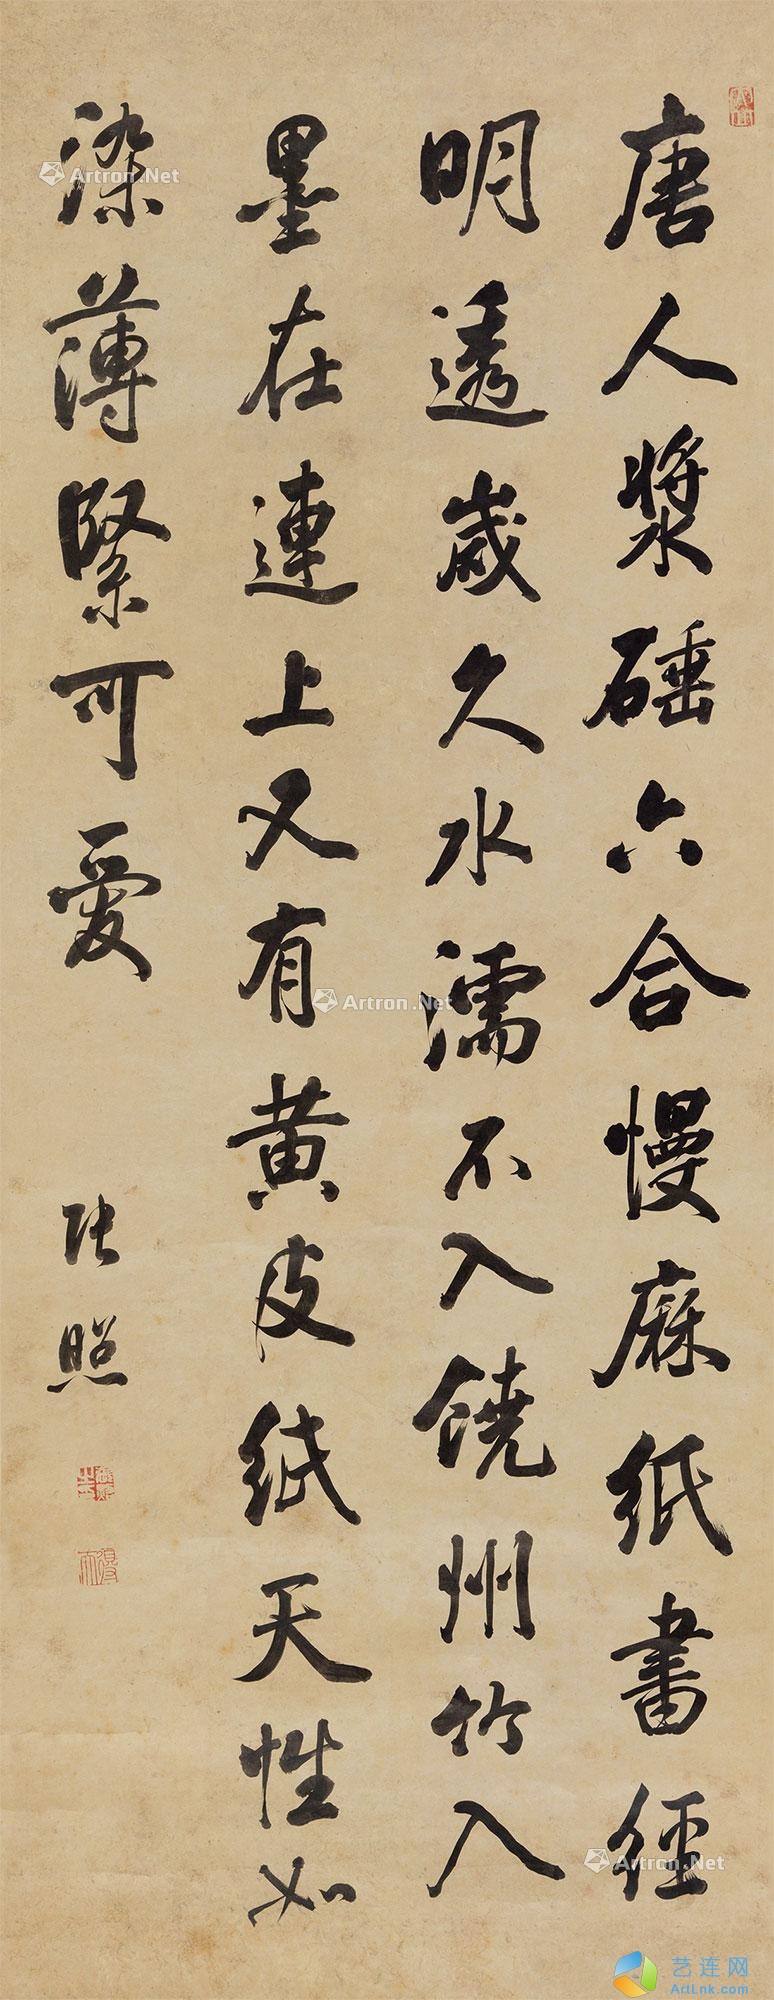 唐人漿硾六合慢麻紙書經
明透歲久水濡不入饒州竹入
墨在連上又有黄皮紙天性如
染薄緊可爱
张照
Artron.Net
Artron.Net
Artron.Net
艺连网
ArtLnk.com